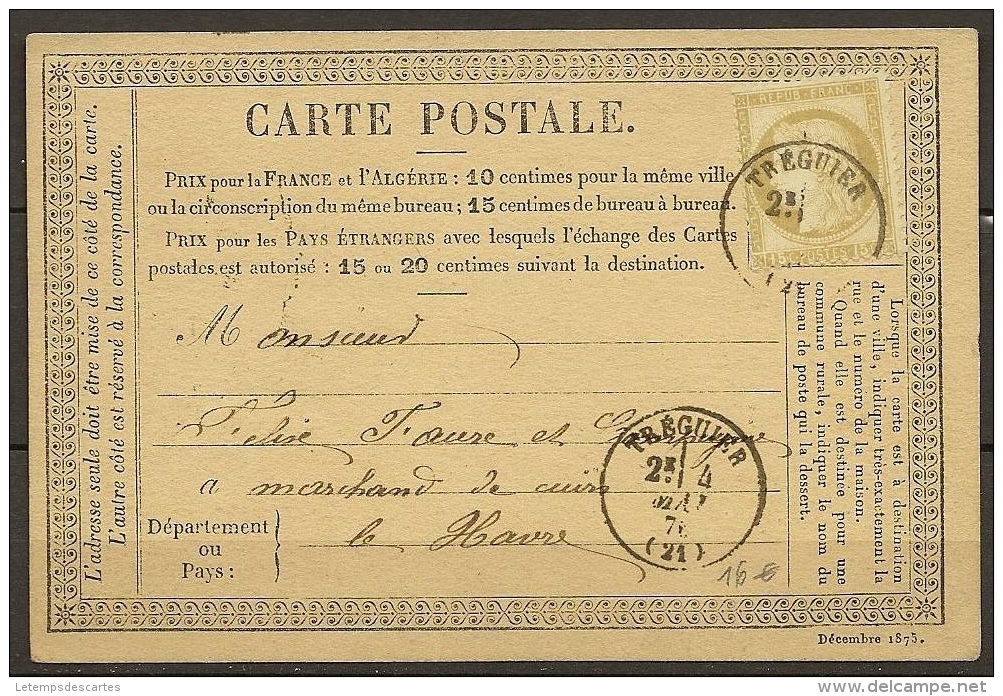 CARTE POSTALE.
PRIX pour la FRANCE et l'ALGÉRIE : 10 centimes pour la même ville
ou la circonscription du même bureau ; 15 centimes de bureau à bureau.
PRIX pour les PAYS ÉTRANGERS avec lesquels l'échange des Cartes
postales est autorisé : 15 ou 20 centimes suivant la destination.
REPUB. FRANC.
15 C. POSTES 15
TRÉGUIER
2E
L'adresse seule doit être mise de ce côté de la carte.
L'autre côté est réservé à la correspondance.
Monsieur
Felix Faure et
a marchand de cuirs
le Havre
Département
ou
Pays :
TRÉGUIER
2E 4
MAI
76
(21)
16 €
Lorsque la carte est à destination
d'une ville, indiquer très-exactement la
rue et le numéro de la maison.
Quand elle est destinée pour une
commune rurale, indiquer le nom du
bureau de poste qui la dessert.
Décembre 1875.
Letempsdescartes
delcampe.net